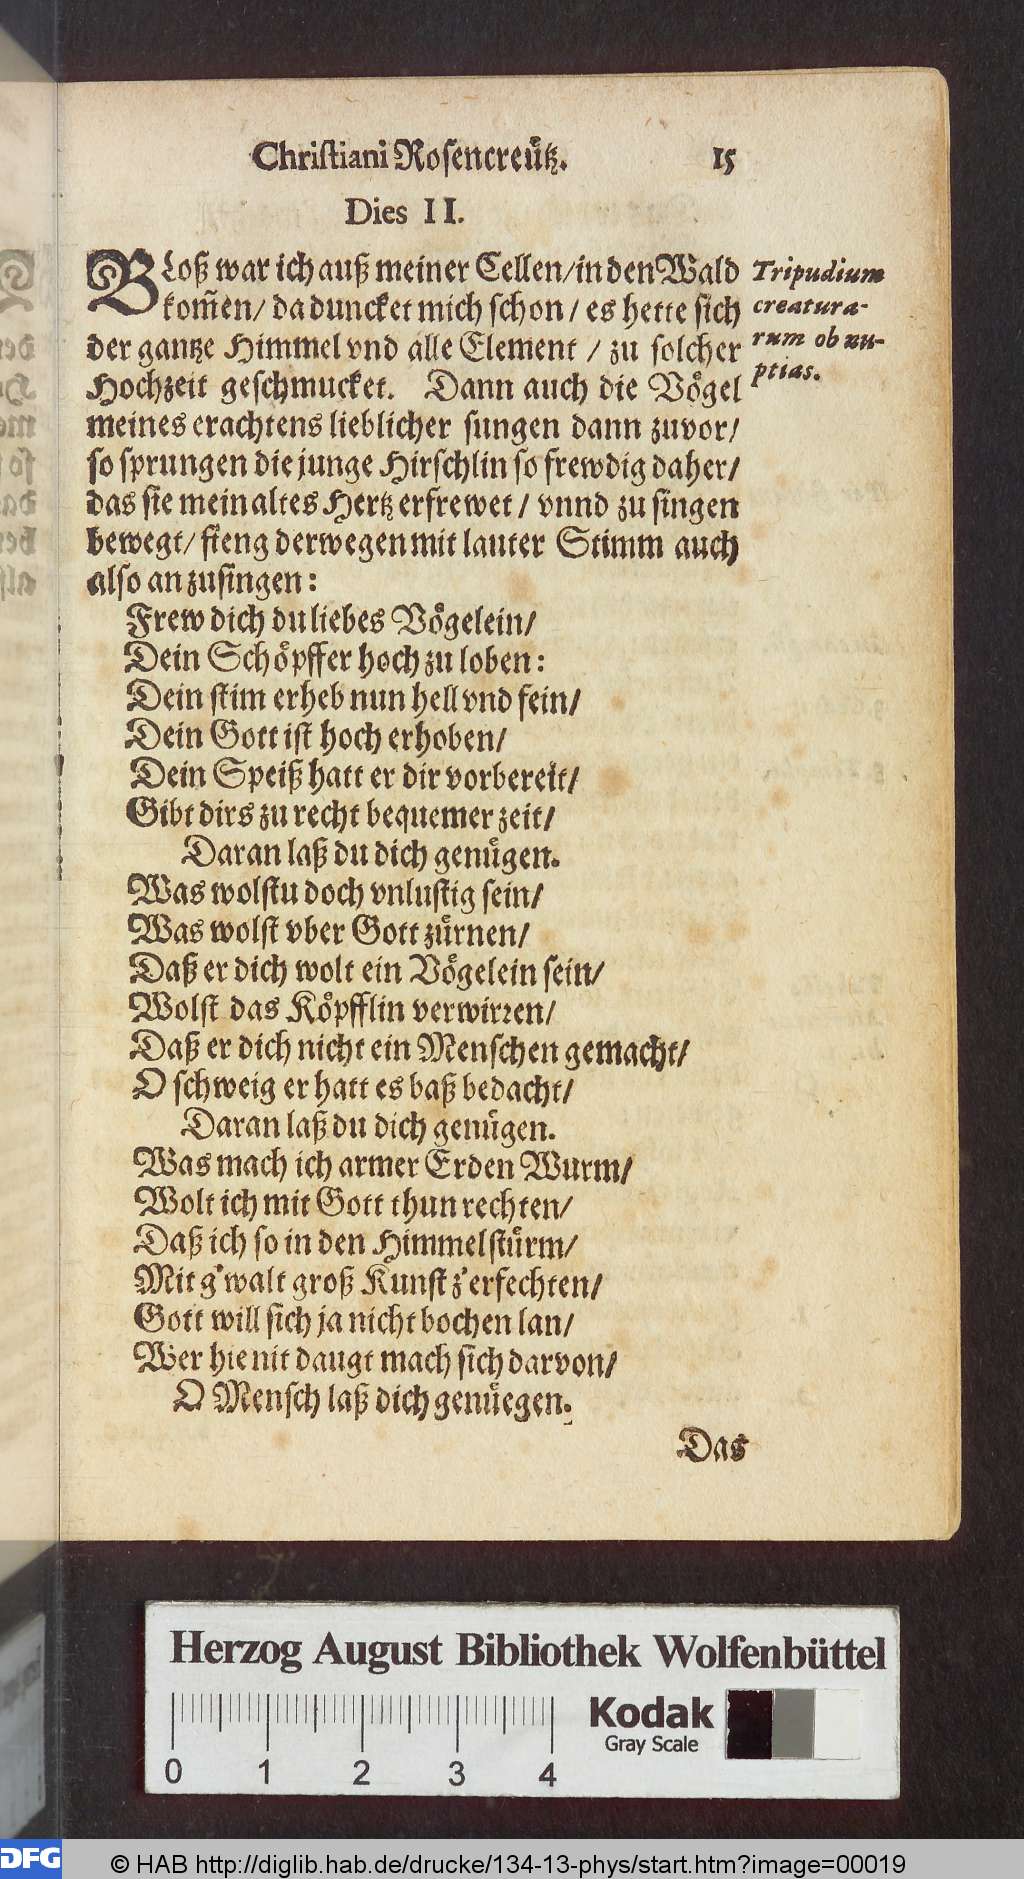 Christiani Rosencreütz. 15
Dies II.
BLoß war ich auß meiner Cellen/ in den Wald
kom̃en/ da duncket mich schon/ es hette sich
der gantze Himmel vnd alle Element / zu solcher
Hochzeit geschmucket. Dann auch die Vögel
meines erachtens lieblicher sungen dann zuvor/
so sprungen die junge Hirschlin so frewdig daher/
das sie mein altes Hertz erfrewet / vnnd zu singen
bewegt/ fieng derwegen mit lauter Stimm auch
also an zusingen:
Tripudium
creatura-
rum ob nu-
ptias.
Frew dich du liebes Vögelein/
Dein Schöpffer hoch zu loben:
Dein stim erheb nun hell vnd fein/
Dein Gott ist hoch erhoben/
Dein Speiß hatt er dir vorbereit/
Gibt dirs zu recht bequemer zeit/
Daran laß du dich genügen.
Was wolstu doch vnlustig sein/
Was wolst vber Gott zürnen/
Daß er dich wolt ein Vögelein sein/
Wolst das Köpfflin verwirren/
Daß er dich nicht ein Menschen gemacht/
O schweig er hatt es baß bedacht/
Daran laß du dich genügen.
Was mach ich armer Erden Wurm/
Wolt ich mit Gott thun rechten/
Daß ich so in den Himmel stürm/
Mit g'walt groß Kunst z'erfechten/
Gott will sich ja nicht bochen lan/
Wer hie nit daugt mach sich darvon/
O Mensch laß dich genüegen.
Das
Herzog August Bibliothek Wolfenbüttel
Kodak
Gray Scale
0 1 2 3 4
DFG
© HAB http://diglib.hab.de/drucke/134-13-phys/start.htm?image=00019